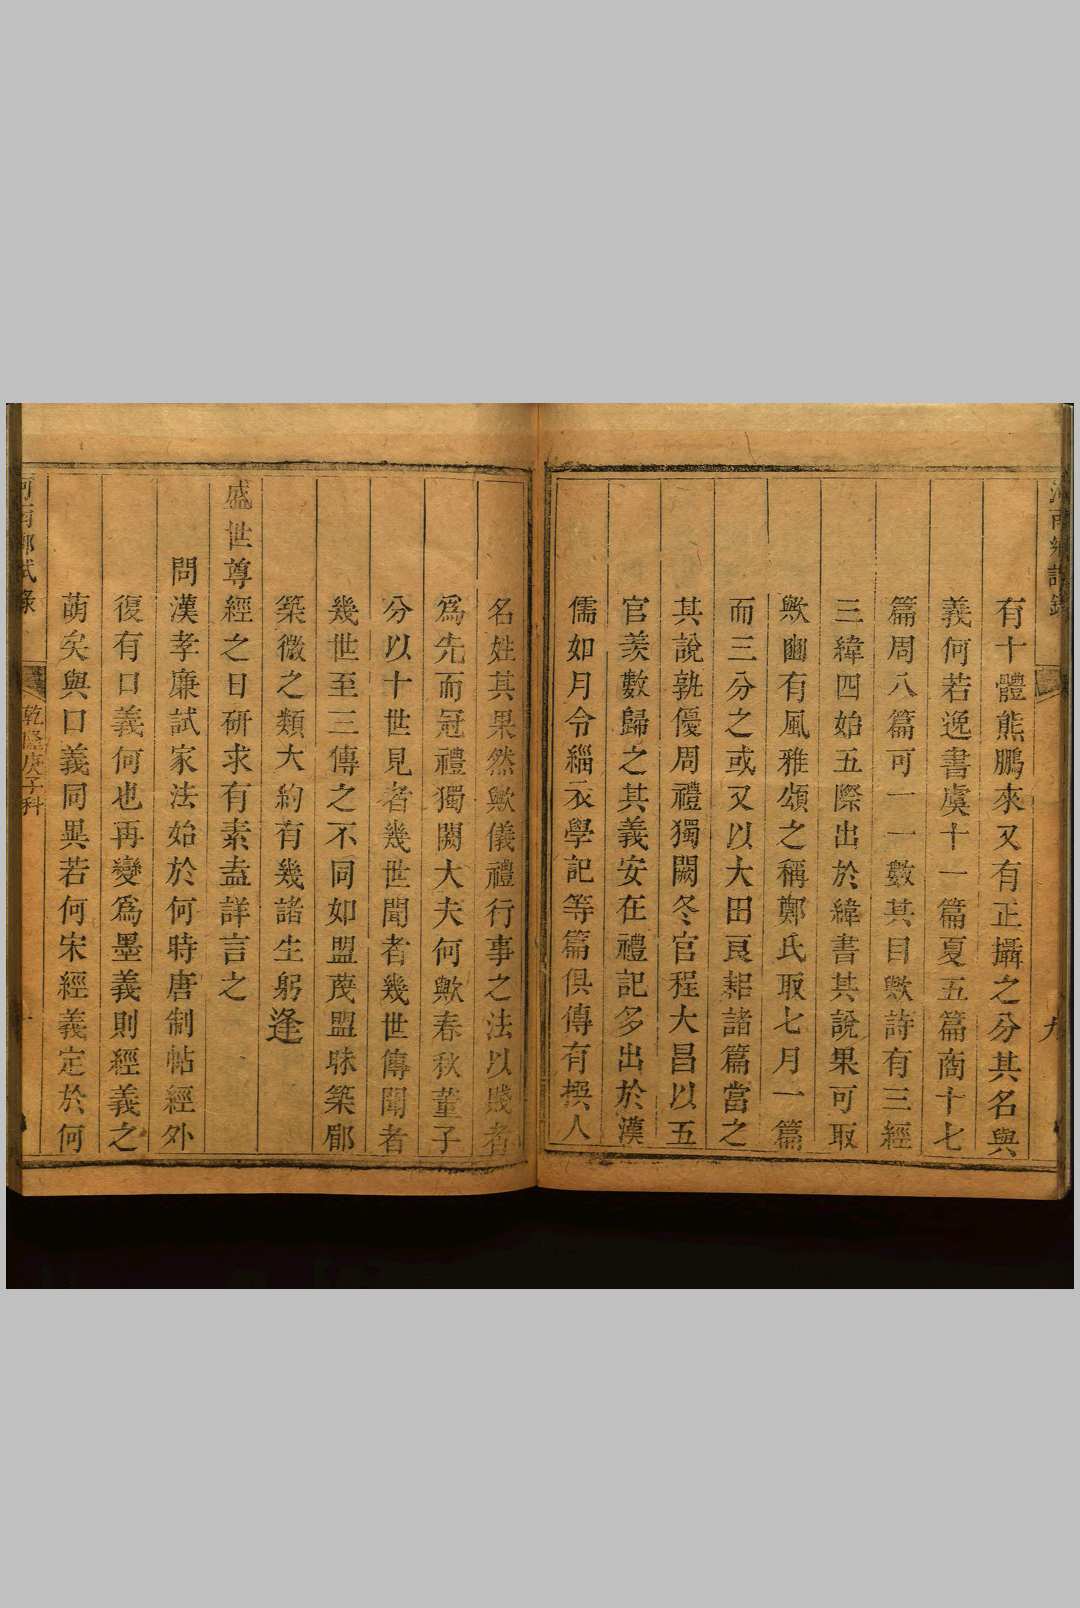 河南鄉試錄
九
有十體熊鵬來又有正攝之分其名與
義何若逸書虞十一篇夏五篇商十七
篇周八篇可一一數其目歟詩有三經
三緯四始五際出於緯書其說果可取
歟豳有風雅頌之稱鄭氏取七月一篇
而三分之或又以大田良耜諸篇當之
其說孰優周禮獨闕冬官程大昌以五
官羨數歸之其義安在禮記多出於漢
儒如月令緇衣學記等篇俱傳有撰人
名姓其果然歟儀禮行事之法以賤者
為先而冠禮獨闕大夫何歟春秋董子
分以十世見者幾世聞者幾世傳聞者
幾世至三傳之不同如盟蔑盟昧築郿
築微之類大約有幾諸生躬逢
盛世尊經之日研求有素盍詳言之
問漢孝廉試家法始於何時唐制帖經外
復有口義何也再變為墨義則經義之
萌矣與口義同異若何宋經義定於何
河南鄉試錄
乾隆庚子科